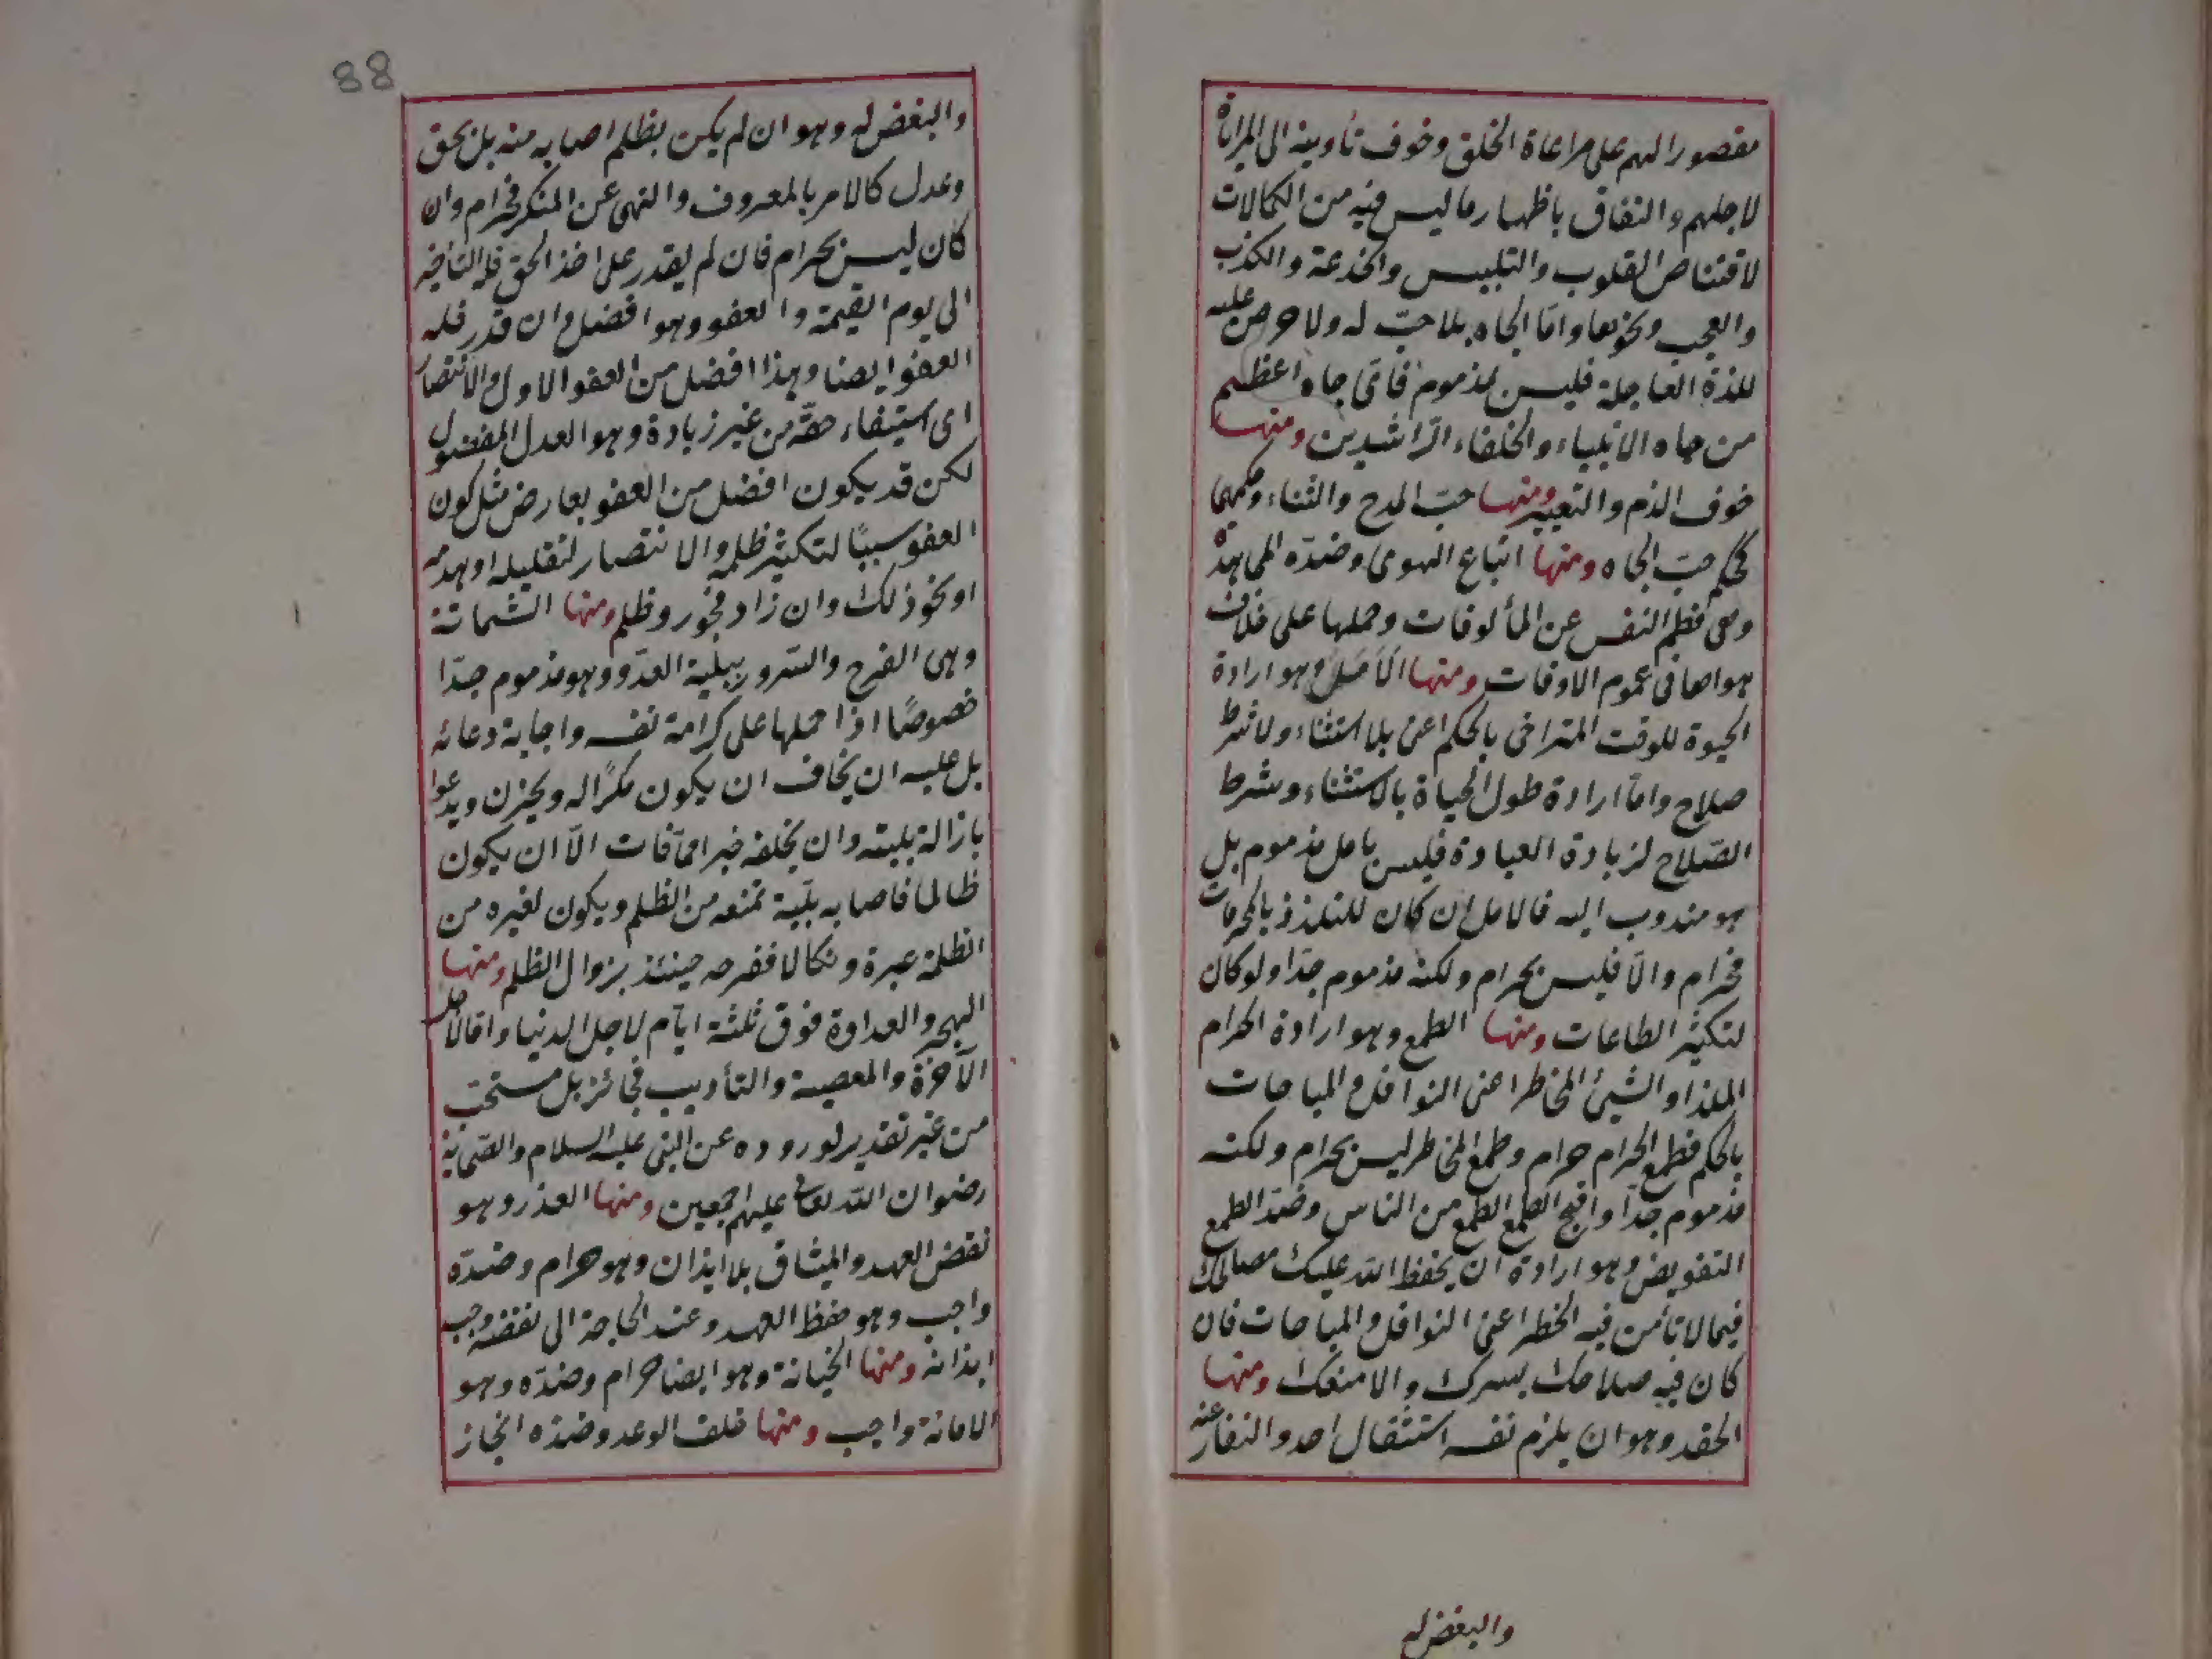 مقصور الهم على مراعاة الخلق وخوف تأديته الى المراياة
لاجلهم والنفاق باظهار ما ليس فيه من الكمالات
لاقتناص القلوب والتلبيس والخدعة والكذب
والعجب ونحوها واما الجاه بلا حبّ له ولا حرص عليه
للذة العاجلة فليس بمذموم فاىّ جاه اعظم
من جاه الانبياء والخلفاء الرّاشدين ومنها
خوف الذم والتعيير ومنها حبّ المدح والثناء وحكمهما
كحكم حبّ الجاه ومنها اتباع الهوى وضدّه المجاهدة
وهى فطم النفس عن المألوفات وحملها على خلاف
هواها فى عموم الاوقات ومنها الأمل وهو ارادة
الحيوة للوقت المتراخى بالحكم اعنى بلا استثناء ولا شرط
صلاح وامّا ارادة طول الحياة بالاستثناء وشرط
الصّلاح لزيادة العبادة فليس بامل مذموم بل
هو مندوب اليه فالامل ان كان للتلذذ بالمحرمات
فحرام والّا فليس بحرام ولكنه مذموم جدّا ولو كان
لتكثير الطاعات ومنها الطمع وهو ارادة الحرام
الملذ او الشيئ المخاطر اعنى النوافل والمباحات
بالحكم فطمع الحرام حرام وطمع المخاطر ليس بحرام ولكنه
مذموم جدّا واقبح الطمع الطمع من الناس وضدّ الطمع
التفويض وهو ارادة ان يحفظ الله عليك مصالحك
فيما لا تأمن فيه الخطر اعنى النوافل والمباحات فان
كان فيه صلاحك يسرك والا منعك ومنها
الحقد وهو ان يلزم نفسه استثقال احد والنفار عنه
والبغض له
88
والبغض له وهو ان لم يكن بظلم اصابه منه بل بحق
وعدل كالامر بالمعروف والنهى عن المنكر فحرام وان
كان ليس بحرام فان لم يقدر على اخذ الحق فله التأخير
الى يوم القيمة والعفو وهو افضل وان قدر فله
العفو ايضا وهذا افضل من العفو الاول والانتصار
اى استيفاء حقّه من غير زيادة وهو العدل المفضول
لكن قد يكون افضل من العفو بعارض مثل كون
العفو سببًا لتكثير ظلمه والانتصار لتقليله او هدمه
او نحو ذلك وان زاد فجور وظلم ومنها الشماتة
وهى الفرح والسّرور ببليّة العدّو وهو مذموم جدّا
خصوصًا اذا حملها على كرامة نفسه واجابة دعائه
بل عليه ان يخاف ان يكون مكرًا له ويحزن ويدعوا
بازالة بليته وان يخلفه خيرا ممّا فات الّا ان يكون
ظالما فاصابه بليّة تمنعه من الظلم ويكون لغيره من
الظلمة عبرة ونكالا ففرحه حينئذ بزوال الظلم ومنها
الهجر والعداوة فوق ثلثة ايّام لاجل الدنيا وامّا لاجل
الآخرة والمعصية والتأديب فجائز بل مستحبّ
من غير تقدير لوروده عن النبى عليه السلام والصّحابة
رضوان الله تعالى عليهم اجمعين ومنها الغدر وهو
نقض العهد والميثاق بلا ايذان وهو حرام وضدّه
واجب وهو حفظ العهد وعند الحاجة الى نقضه وجب
ايذانه ومنها الخيانة وهو ايضا حرام وضدّه وهو
الامانة واجب ومنها خلف الوعد وضدّه انجاز